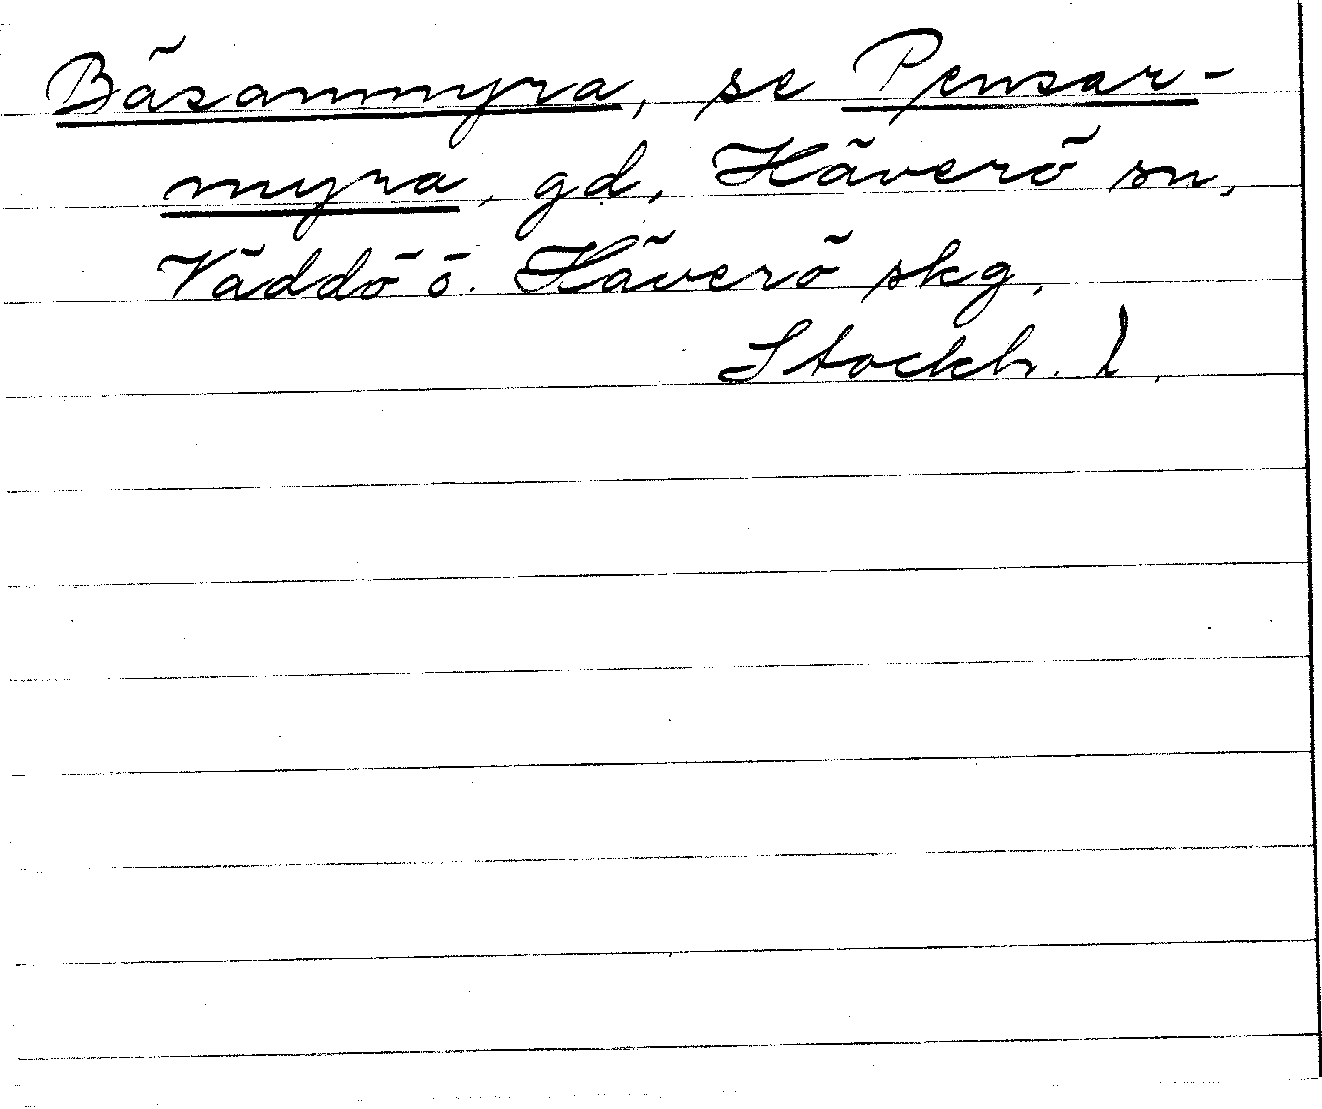 Bäsammyra, se Pensar-
myra, gd, Häverö sn,
Väddö ö. Häverö skg,
Stockh. l.